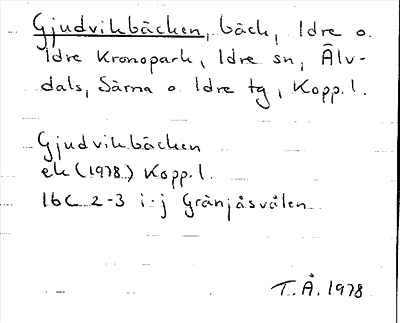 Gjudvikbäcken, bäck, Idre o.
Idre Kronopark, Idre sn, Älv-
dals, Särna o. Idre tg, Kopp.l.
Gjudvikbäcken
ek (1978) Kopp.l.
16C 2-3 i-j Gränjåsvålen
T.Å. 1978